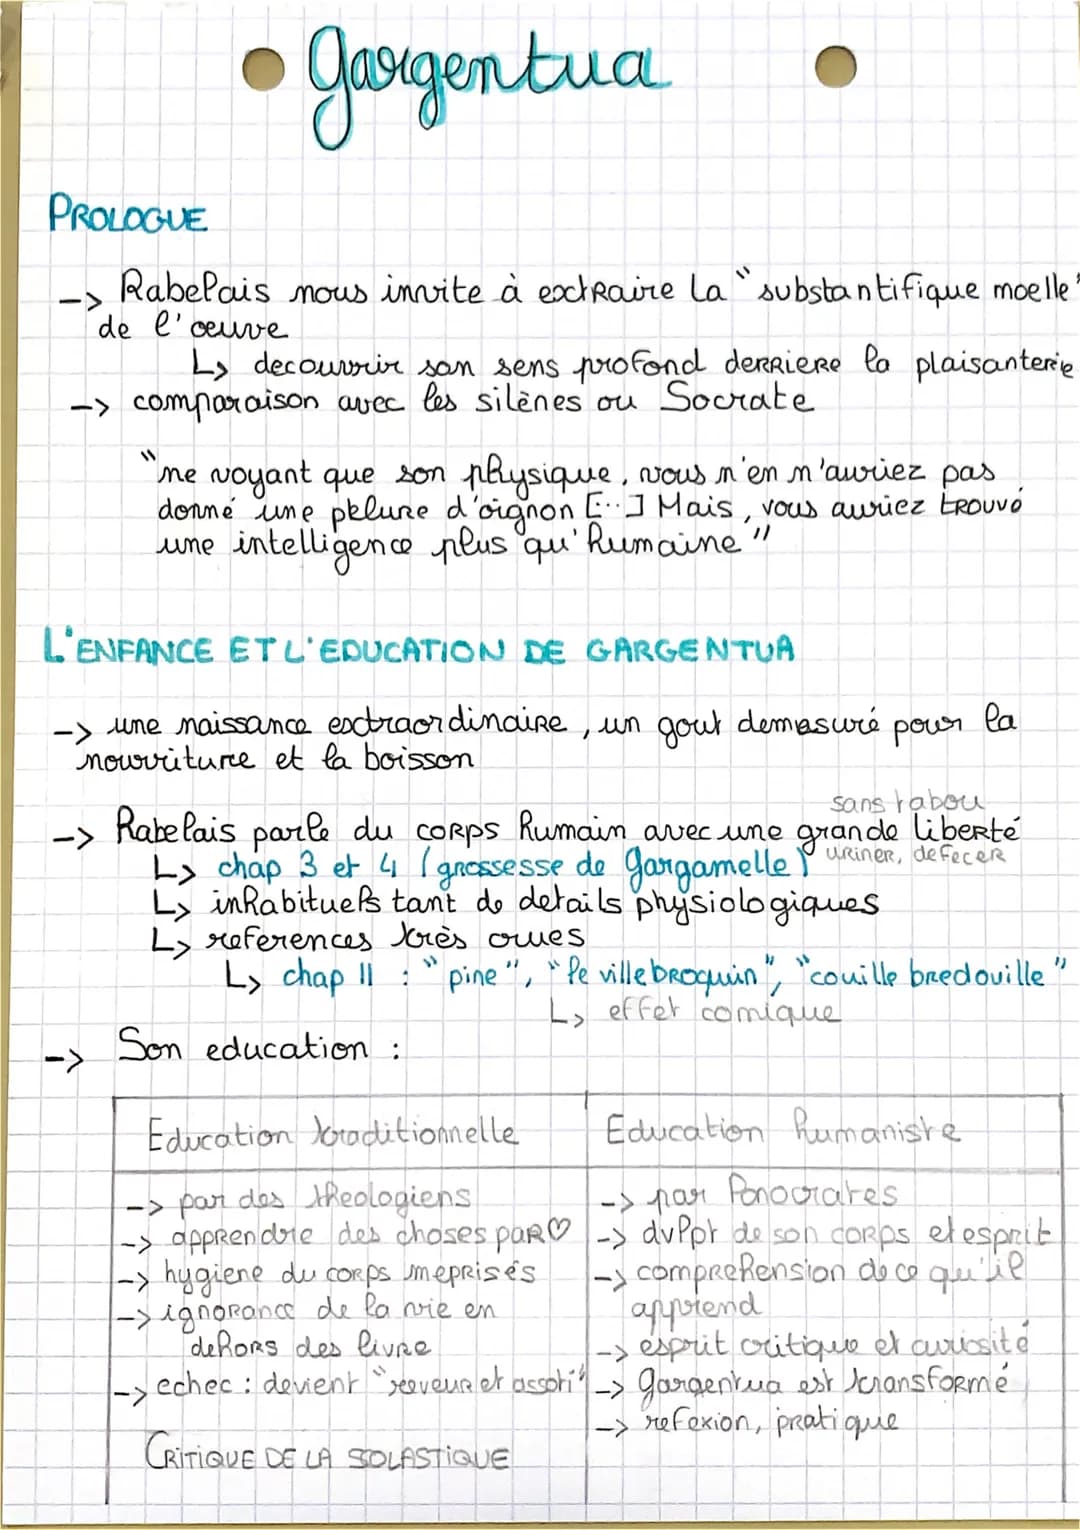 Gargentua
PROLOGUE
-> Rabelais nous invite à extraire la "substantifique moelle"
de l'œuvre
↳ decouvrir son sens profond derriere la plaisanterie
-> comparaison avec les silènes ou Socrate
"ne voyant que son physique, vous n'en n'auriez pas
donné une pelure d'oignon [...] Mais, vous auriez trouvé
une intelligence plus qu'humaine"
L'ENFANCE ET L'EDUCATION DE GARGENTUA
-> une naissance extraordinaire, un gout demesuré pour la
nourriture et la boisson
sans tabou
-> Rabelais parle du corps humain avec une grande liberté
uriner, defecer
↳ chap 3 et 4 (grossesse de Gargamelle)
↳ inhabituels tant de details physiologiques
↳ references très crues
↳ chap 11 : "pine", "le villebroquin", "couille bredouille"
↳ effet comique
-> Son education :
Education traditionnelle
Education humaniste
-> par des theologiens
-> apprendre des choses par ♡
-> hygiene du corps meprisés
-> ignorance de la vie en
dehors des livre
-> echec : devient "reeveur et assoti"
CRITIQUE DE LA SOLASTIQUE
-> par Ponocrates
-> dvppt de son corps et esprit
-> comprehension de ce qu'il
apprend
-> esprit critique et curiosité
-> Gargentua est transformé
-> refexion, pratique